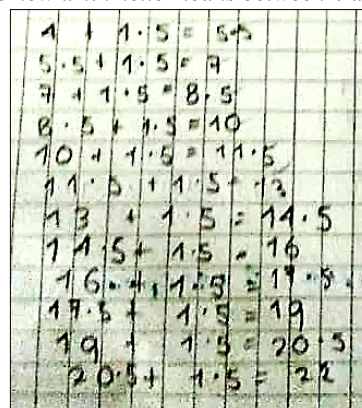 1 + 1.5 = 5.5
5.5 + 1.5 = 7
7 + 1.5 = 8.5
8.5 + 1.5 = 10
10 + 1.5 = 11.5
11.5 + 1.5 = 13
13 + 1.5 = 14.5
14.5 + 1.5 = 16
16 + 1.5 = 17.5
17.5 + 1.5 = 19
19 + 1.5 = 20.5
20.5 + 1.5 = 22